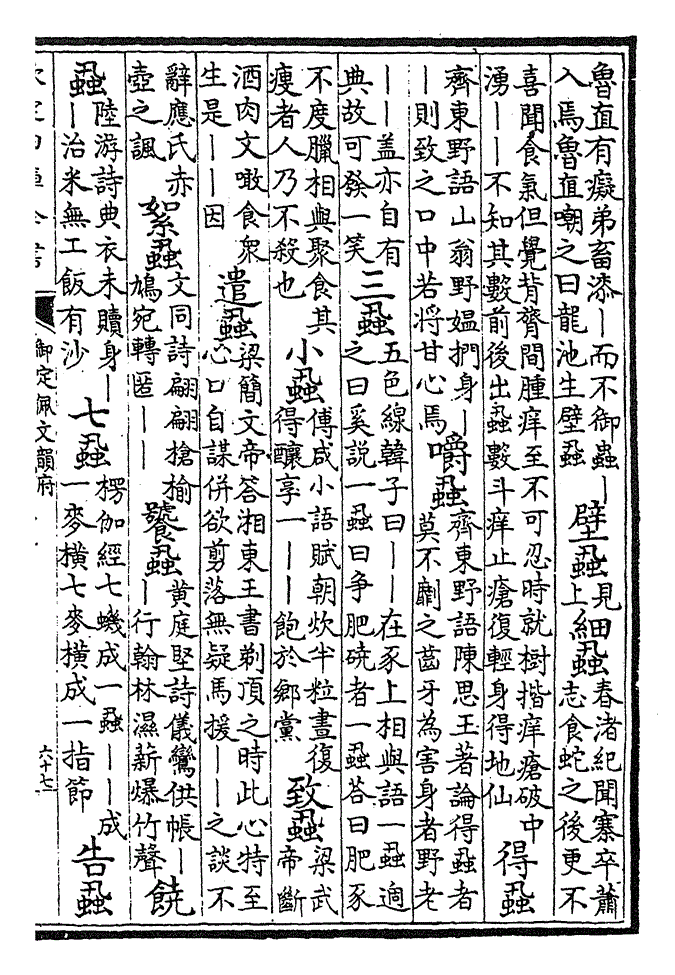 魯直有癡弟畜漆丨而不御蟲丨
入焉魯直嘲之曰龍池生壁蝨
壁蝨
見
上
細蝨
春渚紀聞寨卒蕭
志食蛇之後更不
喜聞食氣但覺背膂間腫痒至不可忍時就樹揩痒瘡破中
湧丨丨不知其數前後出蝨數斗痒止瘡復輕身得地仙
得蝨
齊東野語山翁野媼捫身丨
丨則致之口中若將甘心焉
嚼蝨
齊東野語陳思王著論得蝨者
莫不劘之齒牙為害身者野老
丨丨盖亦自有
典故可發一笑
三蝨
五色線韓子曰丨丨在豕上相與語一蝨過
之曰奚說一蝨曰争肥硗者一蝨荅曰肥豕
不度臘相與聚食其
瘦者人乃不殺也
小蝨
傅咸小語賦朝炊半粒晝復
得釀享一丨丨飽於鄉黨
致蝨
梁武
帝斷
酒肉文噉食衆
生是丨丨因
遣蝨
梁簡文帝答湘東王書剃頂之時此心特至
心口自謀併欲剪落無疑馬援丨丨之談不
辭應氏赤
壺之諷
絮蝨
文同詩翩翩搶榆
鳩宛轉匿丨丨
饕蝨
黄庭堅詩儀鸞供帳丨
丨行翰林濕薪爆竹聲
饒
蝨
陸游詩典衣未贖身丨
丨治米無工飯有沙
七蝨
楞伽經七蟣成一蝨丨丨成
一麥横七麥横成一指節
告蝨
御定佩文韻府
六十七